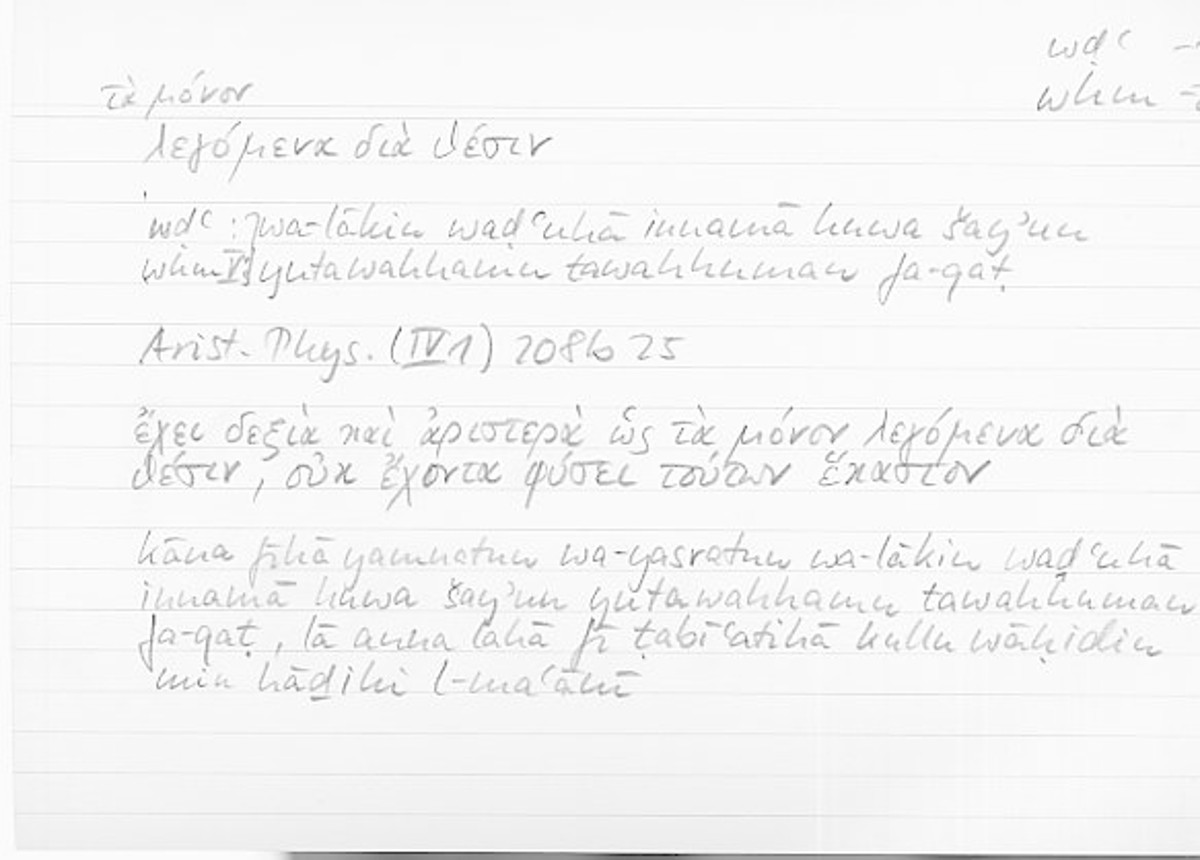 wḍʿ
whm
τὰ μόνον
λεγόμενα διὰ θέσιν
wḍʿ : wa-lākin waḍʿuhā innamā huwa šayʾun
whm V yutawahhamu tawahhuman fa-qaṭ
Arist. Phys. (IV 1) 208b 25
ἔχει δεξιὰ καὶ ἀριστερὰ ὡς τὰ μόνον λεγόμενα διὰ
θέσιν, οὐκ ἔχοντα φύσει τούτων ἕκαστον
kāna fīhā yamnatun wa-yasratun wa-lākin waḍʿuhā
innamā huwa šayʾun yutawahhamu tawahhuman
fa-qaṭ, lā anna lahā fī ṭabīʿatihā kullu wāḥidin
min hāḏihi l-maʿānī